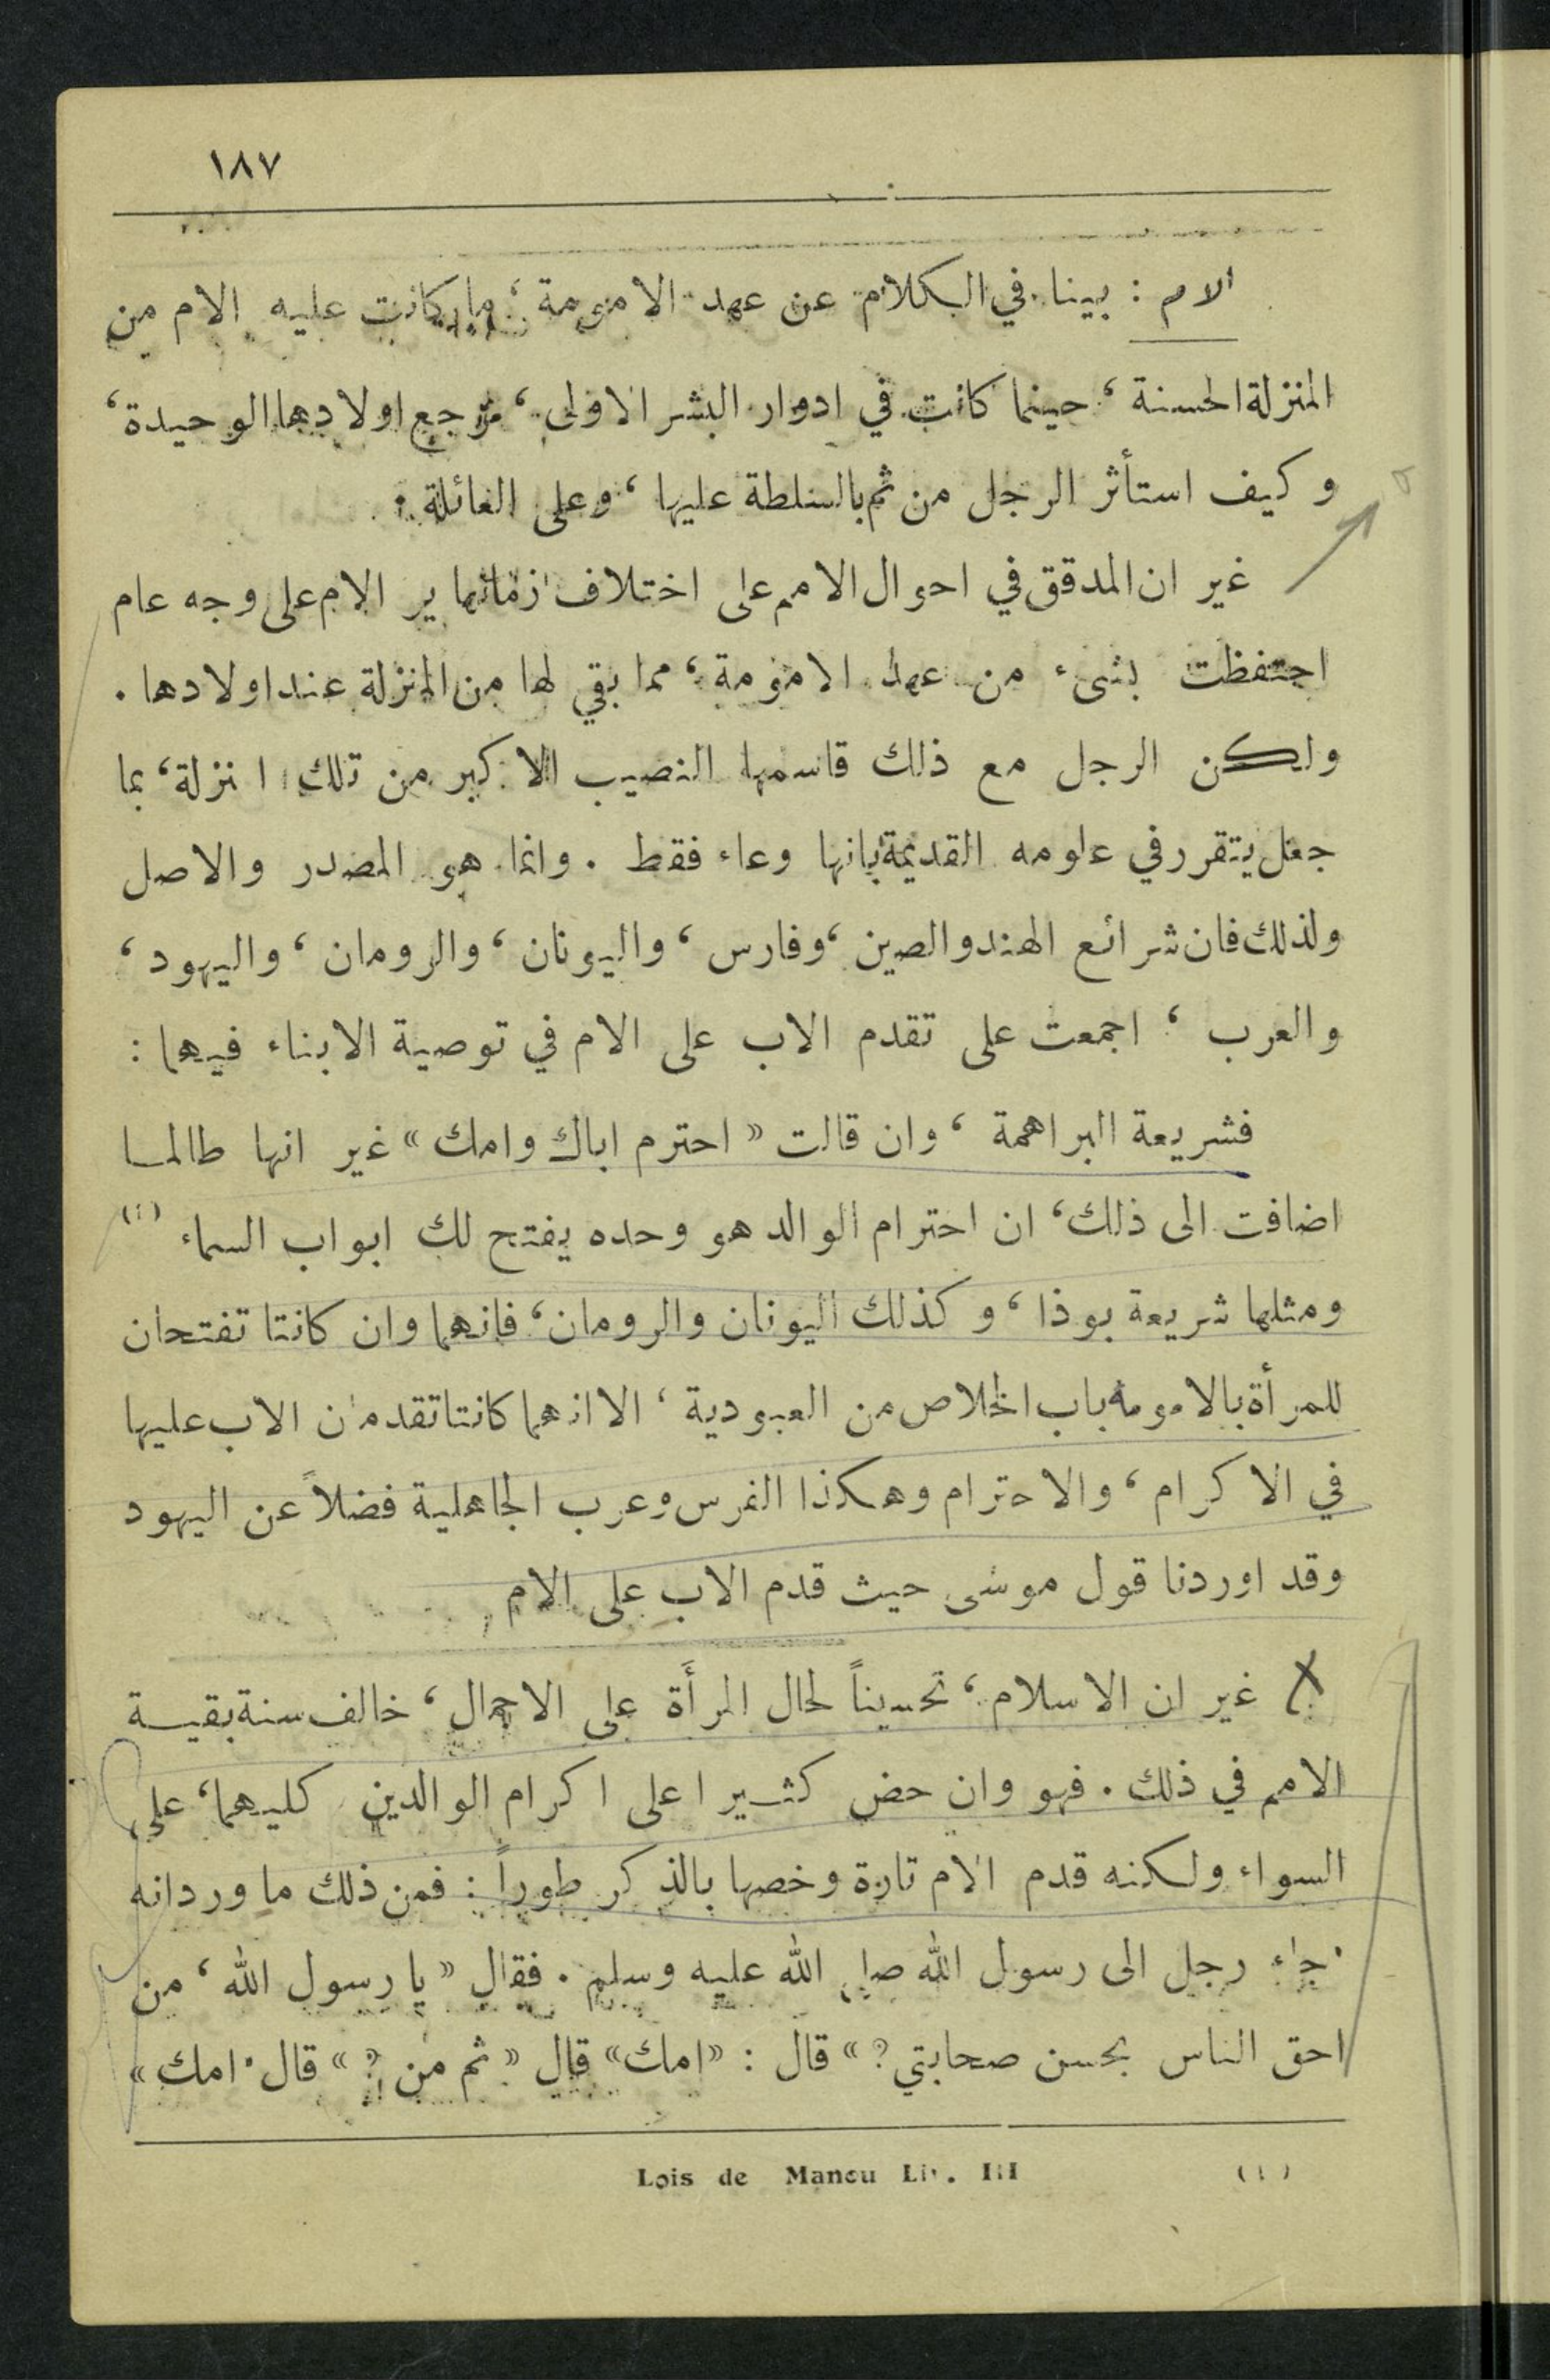 ١٨٧
الام : بينا في الكلام عن عهد الامومة ، ما كانت عليه الام من
المنزلة الحسنة ، حينما كانت في ادوار البشر الاولى ، مرجع اولادها الوحيدة ،
وكيف استأثر الرجل من ثم بالسلطة عليها ، وعلى العائلة .
غير ان المدقق في احوال الامم على اختلاف ازمانها ير الام على وجه عام
احتفظت بشيء من عهد الامومة ، مما بقي لها من المنزلة عند اولادها .
ولكن الرجل مع ذلك قاسمها النصيب الاكبر من تلك ا نزلة ، بما
جعل يتقرر في علومه القديمة بانها وعاء فقط . وانما هو المصدر والاصل
ولذلك فان شرائع الهند والصين ، وفارس ، واليونان ، والرومان ، واليهود ،
والعرب ، اجمعت على تقدم الاب على الام في توصية الابناء فيهما :
فشريعة البراهمة ، وان قالت « احترم اباك وامك » غير انها طالما
اضافت الى ذلك ، ان احترام الوالد هو وحده يفتح لك ابواب السماء (١)
ومثلها شريعة بوذا ، وكذلك اليونان والرومان ، فانهما وان كانتا تفتحان
للمرأة بالامومة باب الخلاص من العبودية ، الا انهما كانتا تقدمان الاب عليها
في الاكرام ، والاحترام وهكذا الفرس وعرب الجاهلية فضلاً عن اليهود
وقد اوردنا قول موسى حيث قدم الاب على الام
غير ان الاسلام ، تحسيناً لحال المرأة على الاجمال ، خالف سنة بقيـة
الامم في ذلك . فهو وان حض كثـيرا على اكرام الوالدين كليهما ، على
السواء ولكنه قدم الام تارة وخصها بالذكر طوراً : فمن ذلك ما ورد انه
جاء رجل الى رسول الله صلى الله عليه وسلم . فقال « يا رسول الله ، من
احق الناس بحسن صحابتي ؟ » قال : « امك » قال « ثم من ؟ » قال " امك »
(١) Lois de Manou Liv. III